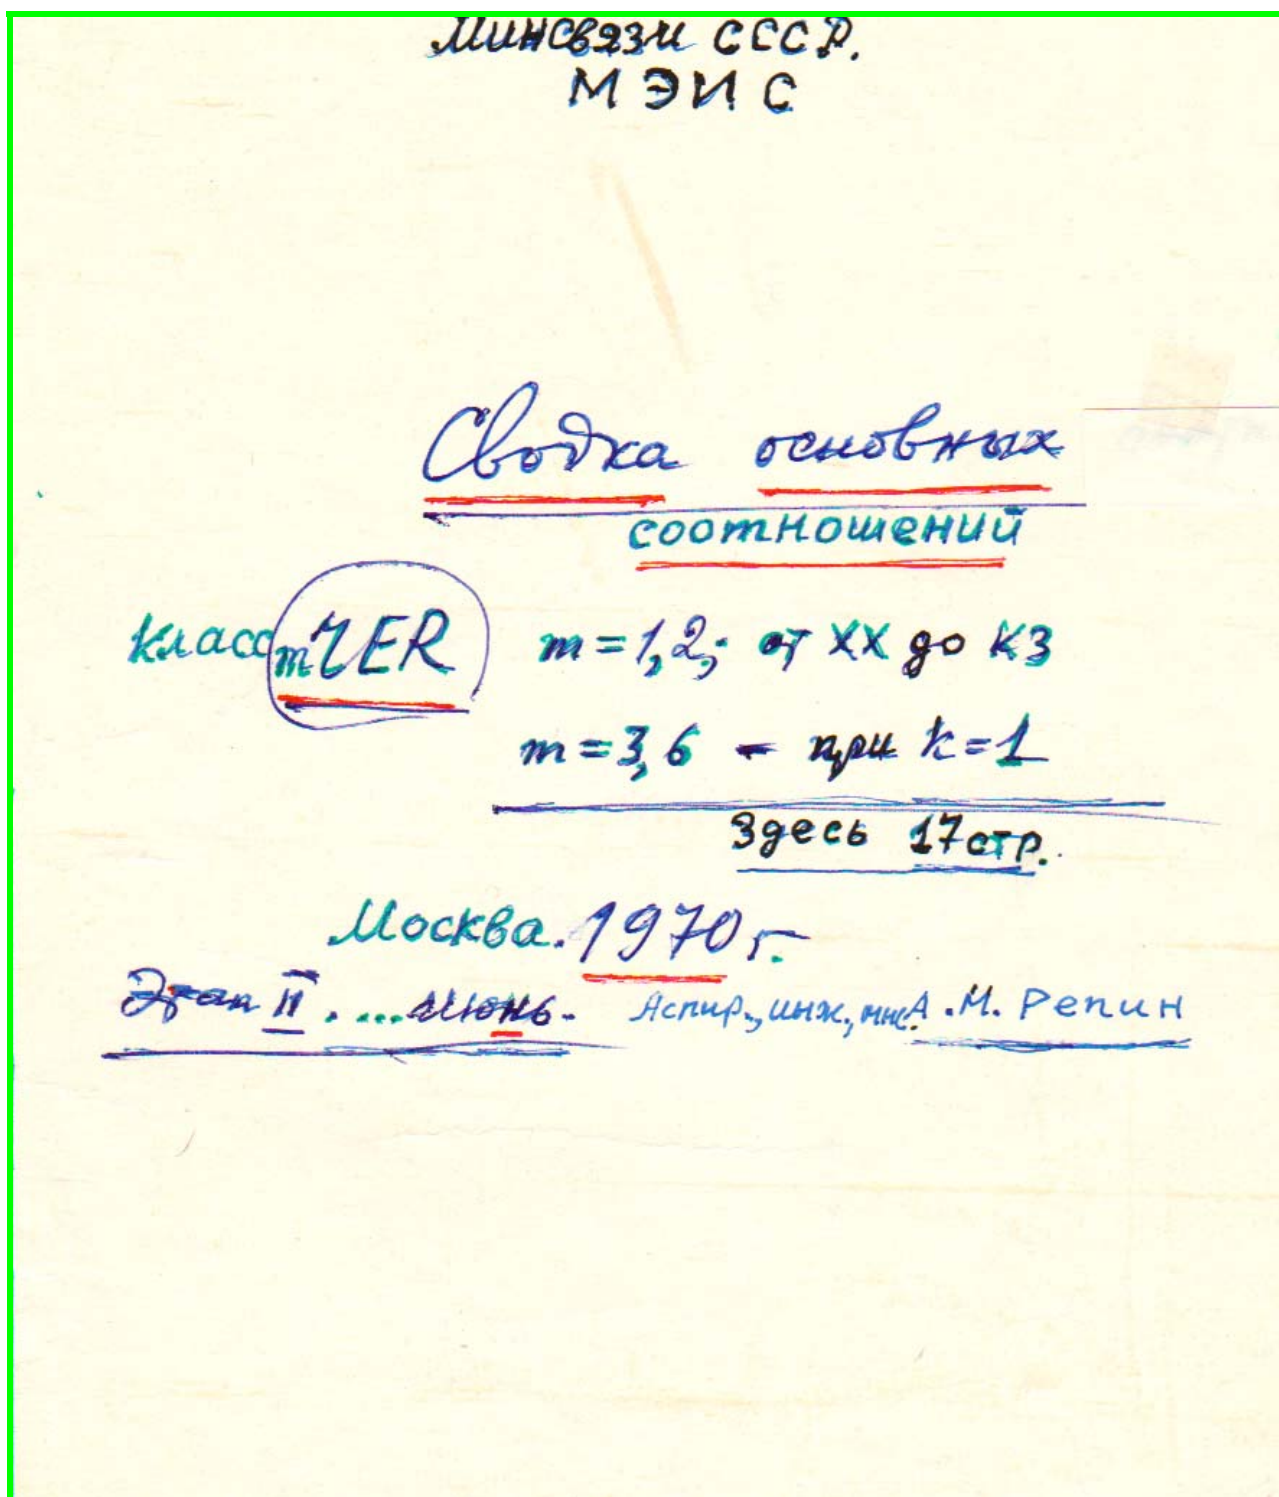 Минсвязи СССР.
МЭИС
Сводка основных
соотношений
класс mЧER m=1,2; от ХХ до КЗ
m=3,6 - при k=1
Здесь 17стр.
Москва. 1970 г.
Этап II . ... Июнь. Аспир., инж., мнс. А.М. Репин